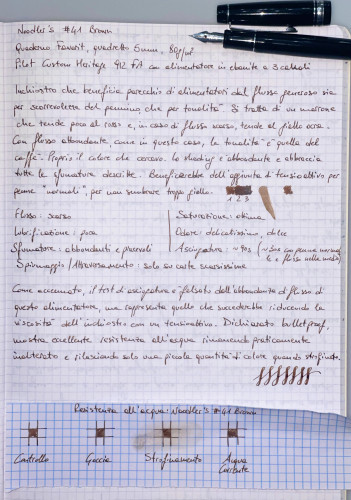 Noodler's #41 Brown
Quaderno Favorit, quadretto 5mm, 80g/m²
Pilot Custom Heritage 912 FA con alimentatore in ebanite a 3 canali
Inchiostro che beneficia parecchio di alimentatori dal flusso generoso sia
per scorrevolezza del pennino che per tonalità. Si tratta di un marrone
che tende poco al rosso e, in caso di flusso scarso, tende al giallo ocra.
Con flusso abbondante, come in questo caso, la tonalità è quella del
caffè. Proprio il colore che cercavo. Lo shading è abbondante e abbraccia
tutte le sfumature descritte. Beneficerebbe dell'aggiunta di tensioattivo per
penne "normali", per non sembrare troppo giallo.
1 2 3
Flusso: scarso
Saturazione: ottima
Lubrificazione: poca
Odore: delicatissimo, dolce
Sfumature: abbondanti e piacevoli
Asciugatura: ~40s (~30s con penne normali,
e flusso nella media)
Spiumaggio/Attraversamento: solo su carte scarsissime
Come accennato, il test di asciugatura è falsato dall'abbondanza di flusso di
questo alimentatore, ma rappresenta quello che succederebbe riducendo la
viscosità dell'inchiostro con un tensioattivo. Dichiarato bulletproof,
mostra eccellente resistenza all'acqua rimanendo praticamente
inalterato e rilasciando solo una piccola quantità di colore quando strofinato.
Resistenza all'acqua: Noodler's #41 Brown
Controllo
Goccia
Strofinamento
Acqua
corrente